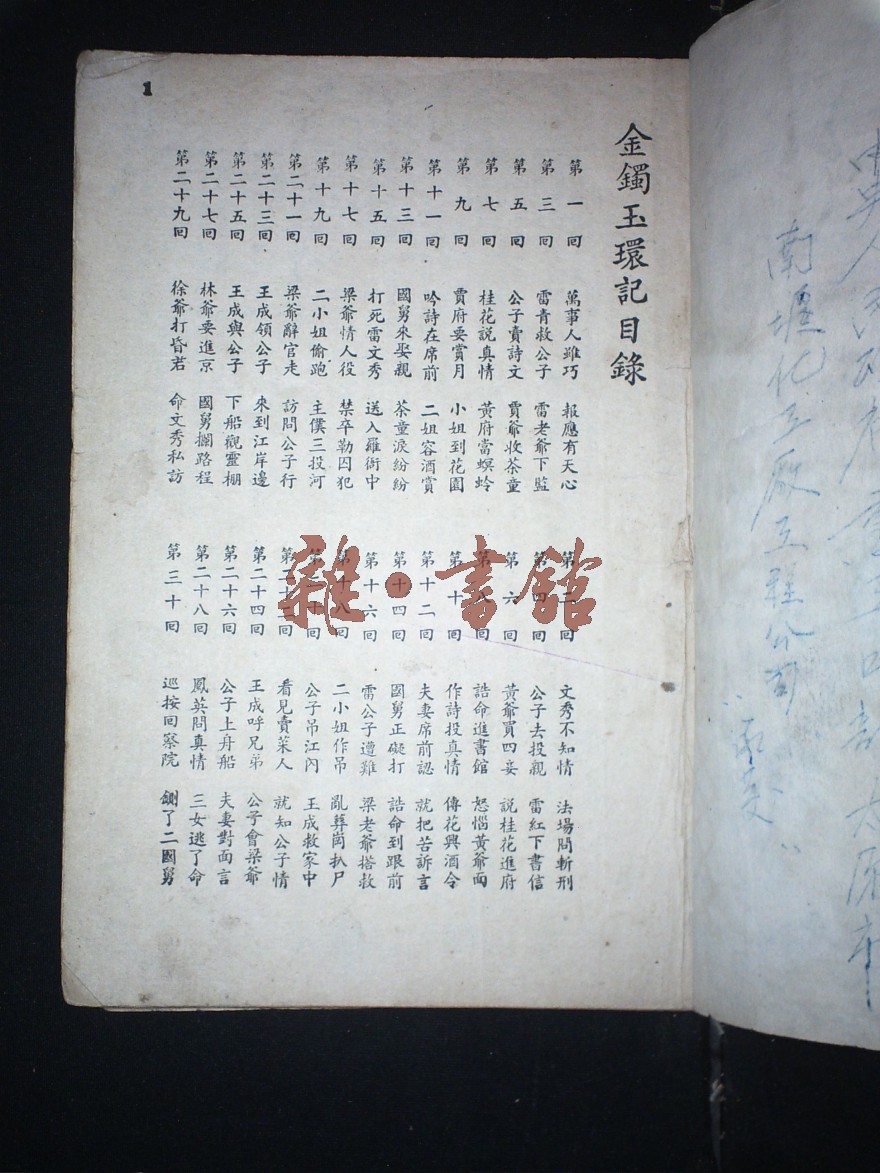 1
金鐲玉環記目錄
第一回 萬事人雖巧 報應有天心
第三回 雷青救公子 雷老爺下監
第五回 公子賣詩文 賈爺收茶童
第七回 桂花說真情 黃府當螟蛉
第九回 賈府要賞月 小姐到花園
第十一回 吟詩在席前 二姐容酒賞
第十三回 國舅來娶親 茶童淚紛紛
第十五回 打死雷文秀 送入羅衙中
第十七回 梁爺情人役 禁卒勒囚犯
第十九回 二小姐偷跑 主僕三投河
第二十一回 梁爺辭官走 訪問公子行
第二十三回 王成領公子 來到江岸邊
第二十五回 王成與公子 下船觀靈棚
第二十七回 林爺要進京 國舅攔路程
第二十九回 徐爺打昏君 命文秀私訪
第二回 文秀不知情 法場問斬刑
第四回 公子去投親 雷紅下書信
第六回 黃爺買四妾 說桂花進府
第八回 誥命進書館 怒惱黃爺面
第十回 作詩投真情 傳花興酒令
第十二回 夫妻席前認 就把苦訴言
第十四回 國舅正礙打 誥命到跟前
第十六回 雷公子遭難 梁老爺搭救
第十八回 二小姐作吊 亂葬崗扒尸
第二十回 公子吊江內 王成救家中
第二十二回 看見賣菜人 就知公子情
第二十四回 王成呼兄弟 公子會梁爺
第二十六回 公子上舟船 夫妻對面言
第二十八回 鳳英問真情 三女逃了命
第三十回 巡按回察院 鍘了二國舅
雜·書館
南堰化工廠工程公司